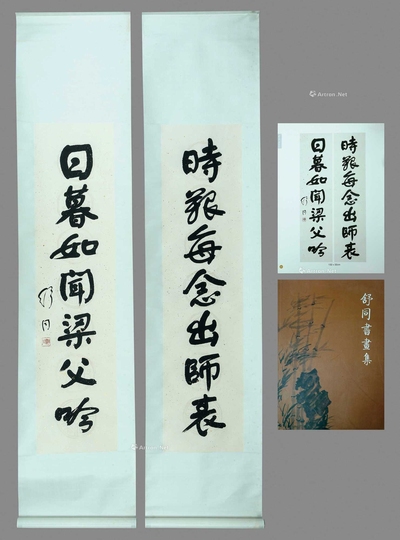 時艱每念出師表
日暮如聞梁父吟
舒同
Artron.Net
時艱每念出師表
日暮如聞梁父吟
舒同
舒同書畫集
Artron.Net